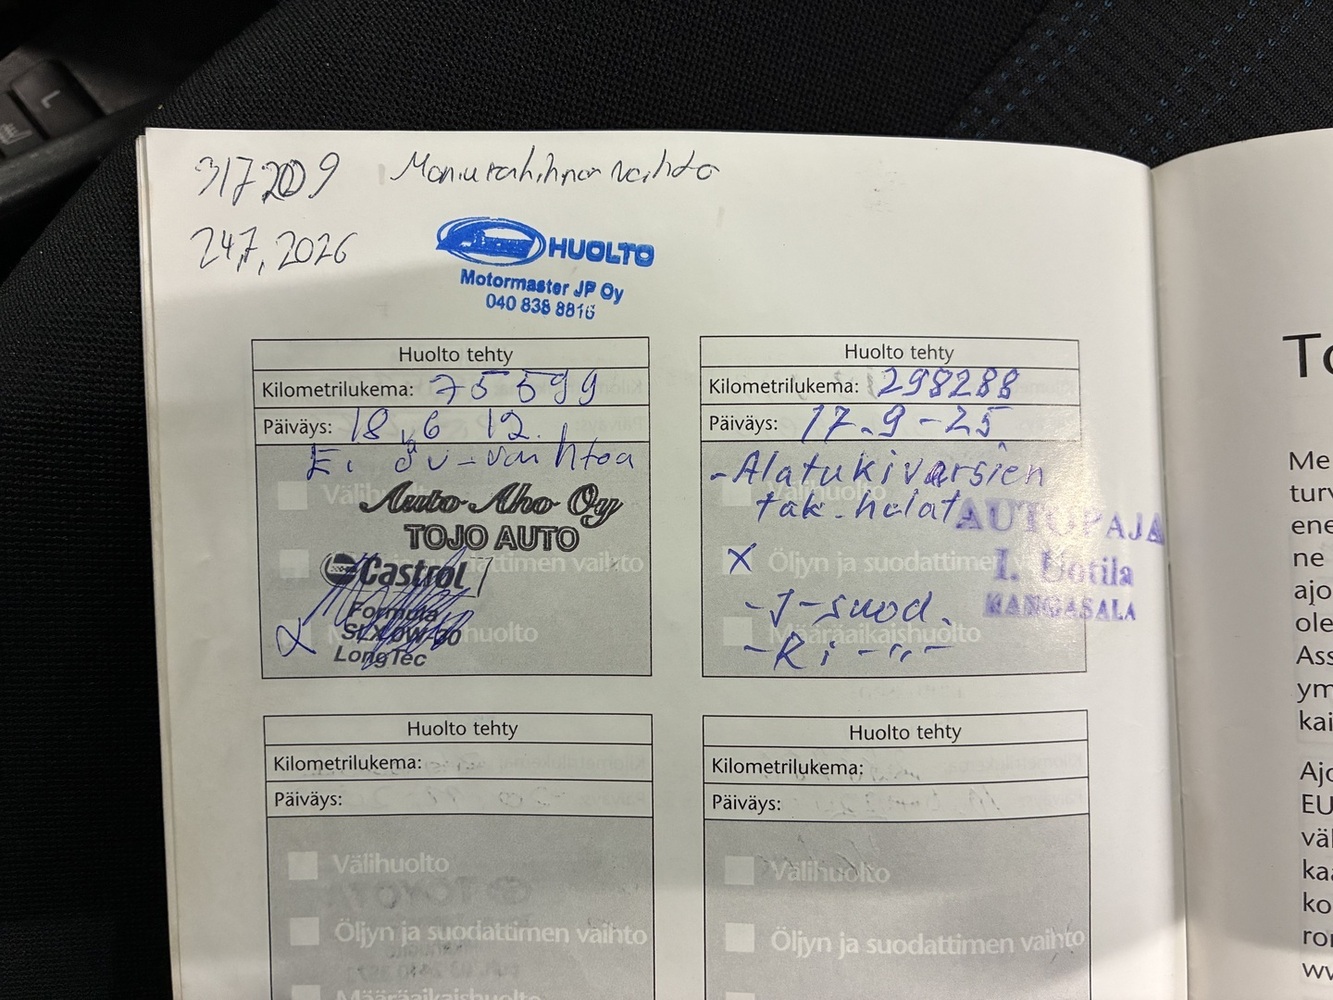 317209
Moniurahihnan vaihto
24.7.2026
HUOLTO
Motormaster JP Oy
040 838 8816
Huolto tehty
Kilometrilukema: 75599
Päiväys: 18.6 12.
Auto-Aho Oy
TOJO AUTO
Castrol
Formula
SLX 0W-30
LongTec
Huolto tehty
Kilometrilukema: 298288
Päiväys: 17.9-25
-Alatukivarsien
tak. helat
AUTOPAJA
X Öljyn ja suodattimen
I. Uotila
KANGASALA
-I-suod.
Määräaikaishuolto
-Ri -"-
Huolto tehty
Kilometrilukema:
Päiväys:
Välihuolto
Öljyn ja suodattimen vaihto
Määräaikaishuolto
Huolto tehty
Kilometrilukema:
Päiväys:
Välihuolto
Öljyn ja suodattimen vaihto
To
Me
turv
ene
ne
ajo
ole
Ass
ym
kai
Ajo
EU
väl
kaa
ko
ror
ww